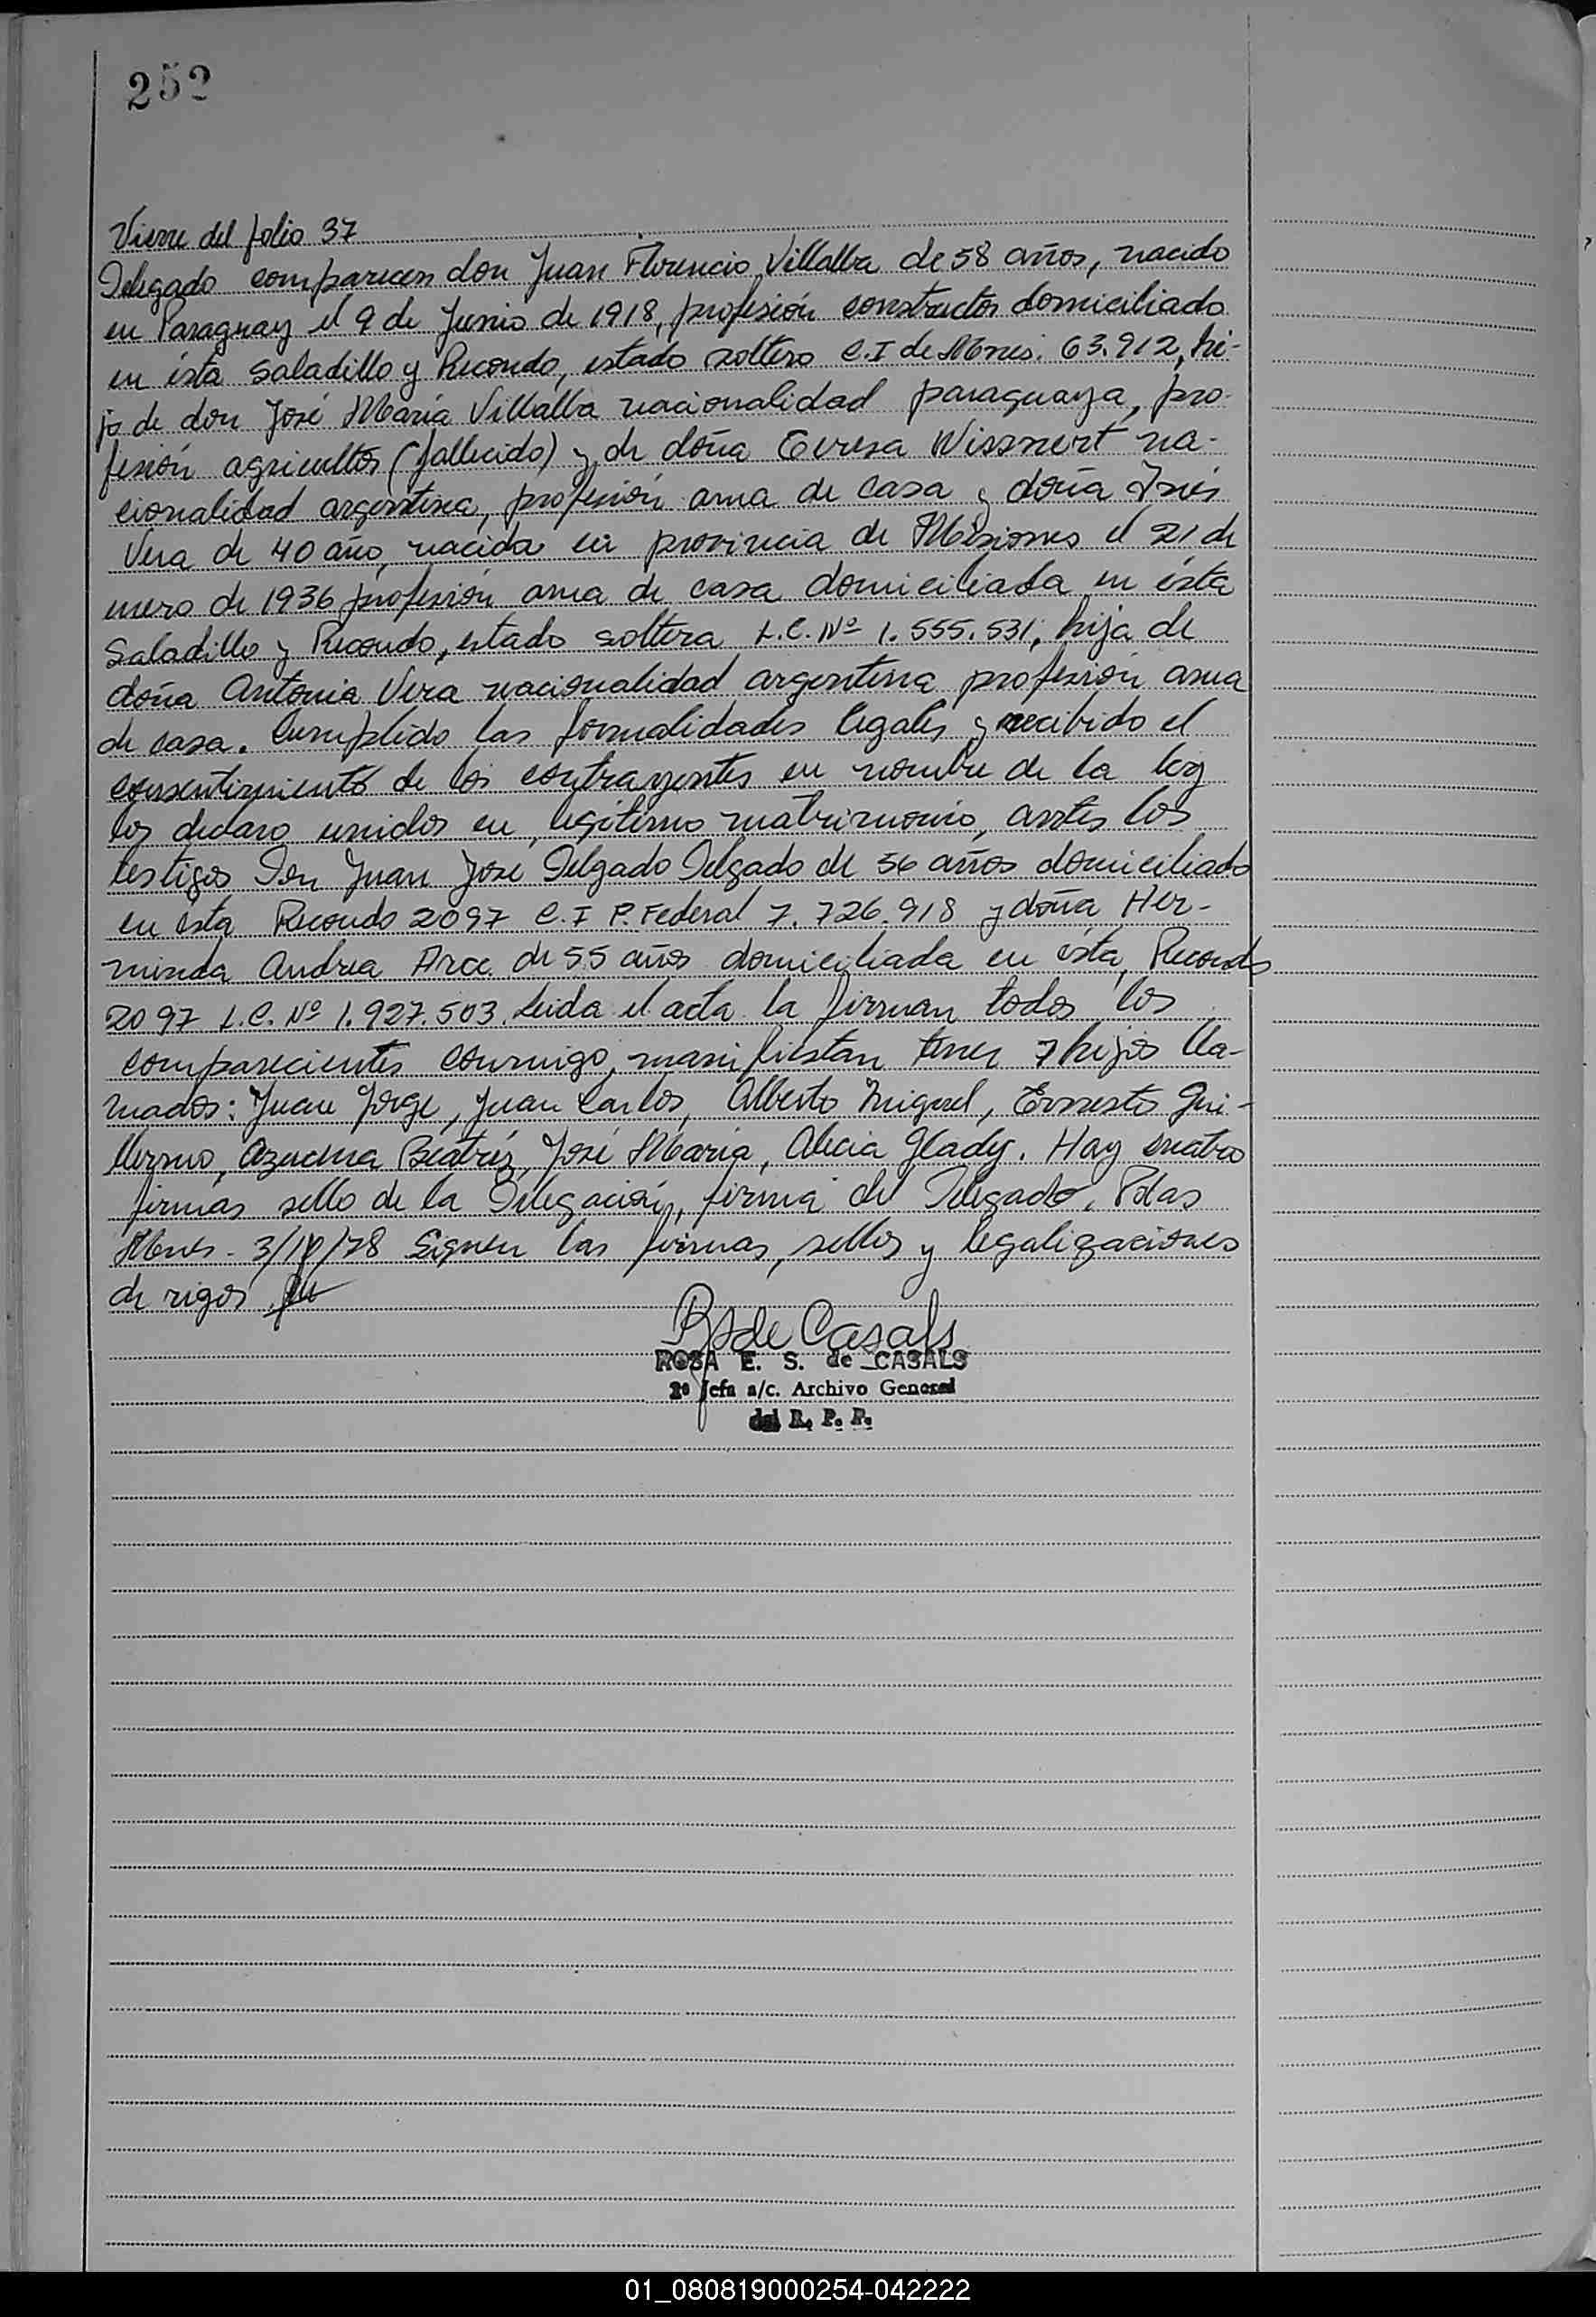 252
Viene del folio 37
Delegado comparecen don Juan Florencio Villalba de 58 años, nacido
en Paraguay el 9 de Junio de 1918, profesión constructor domiciliado
en ésta Saladillo y Recondo, estado soltero C.I de Mnes. 63.912, hi-
jo de don José María Villalba nacionalidad paraguaya, pro-
fesión agricultor (fallecido) y de doña Teresa Wissnert na-
cionalidad argentina, profesión ama de casa y doña Inés
Vera de 40 año, nacida en provincia de Misiones el 21 de
enero de 1936 profesión ama de casa domiciliada en ésta
Saladillo y Recondo, estado soltera L.C. Nº 1.555.531, hija de
doña Antonia Vera nacionalidad argentina profesión ama
de casa. Cumplido las formalidades legales y recibido el
consentimiento de los contrayentes en nombre de la ley
los declaro unidos en legítimo matrimonio, antes los
testigos Don Juan José Delgado Delgado de 56 años domiciliado
en ésta Recondo 2097 C.I P. Federal 7.726.918 y doña Her-
minda Andrea Arce de 55 años domiciliada en ésta, Recondo
2097 L.C. Nº 1.927.503. Leida el acta la firman todos los
comparecientes conmigo, manifiestan tener 7 hijos lla-
mados: Juan Jorge, Juan Carlos, Alberto Miguel, Ernesto Gui-
llermo, Azucena Beatríz, José María, Alicia Glady. Hay cuatro
firmas sello de la Delegación, firma del Delegado, Pdas
Mnes. 3/ /78 Siguen las firmas, sellos y legalizaciones
de rigor
R S de Casals
ROSA E. S. de CASALS
2º Jefa a/c. Archivo General
del R. P. P.
01_080819000254-042222